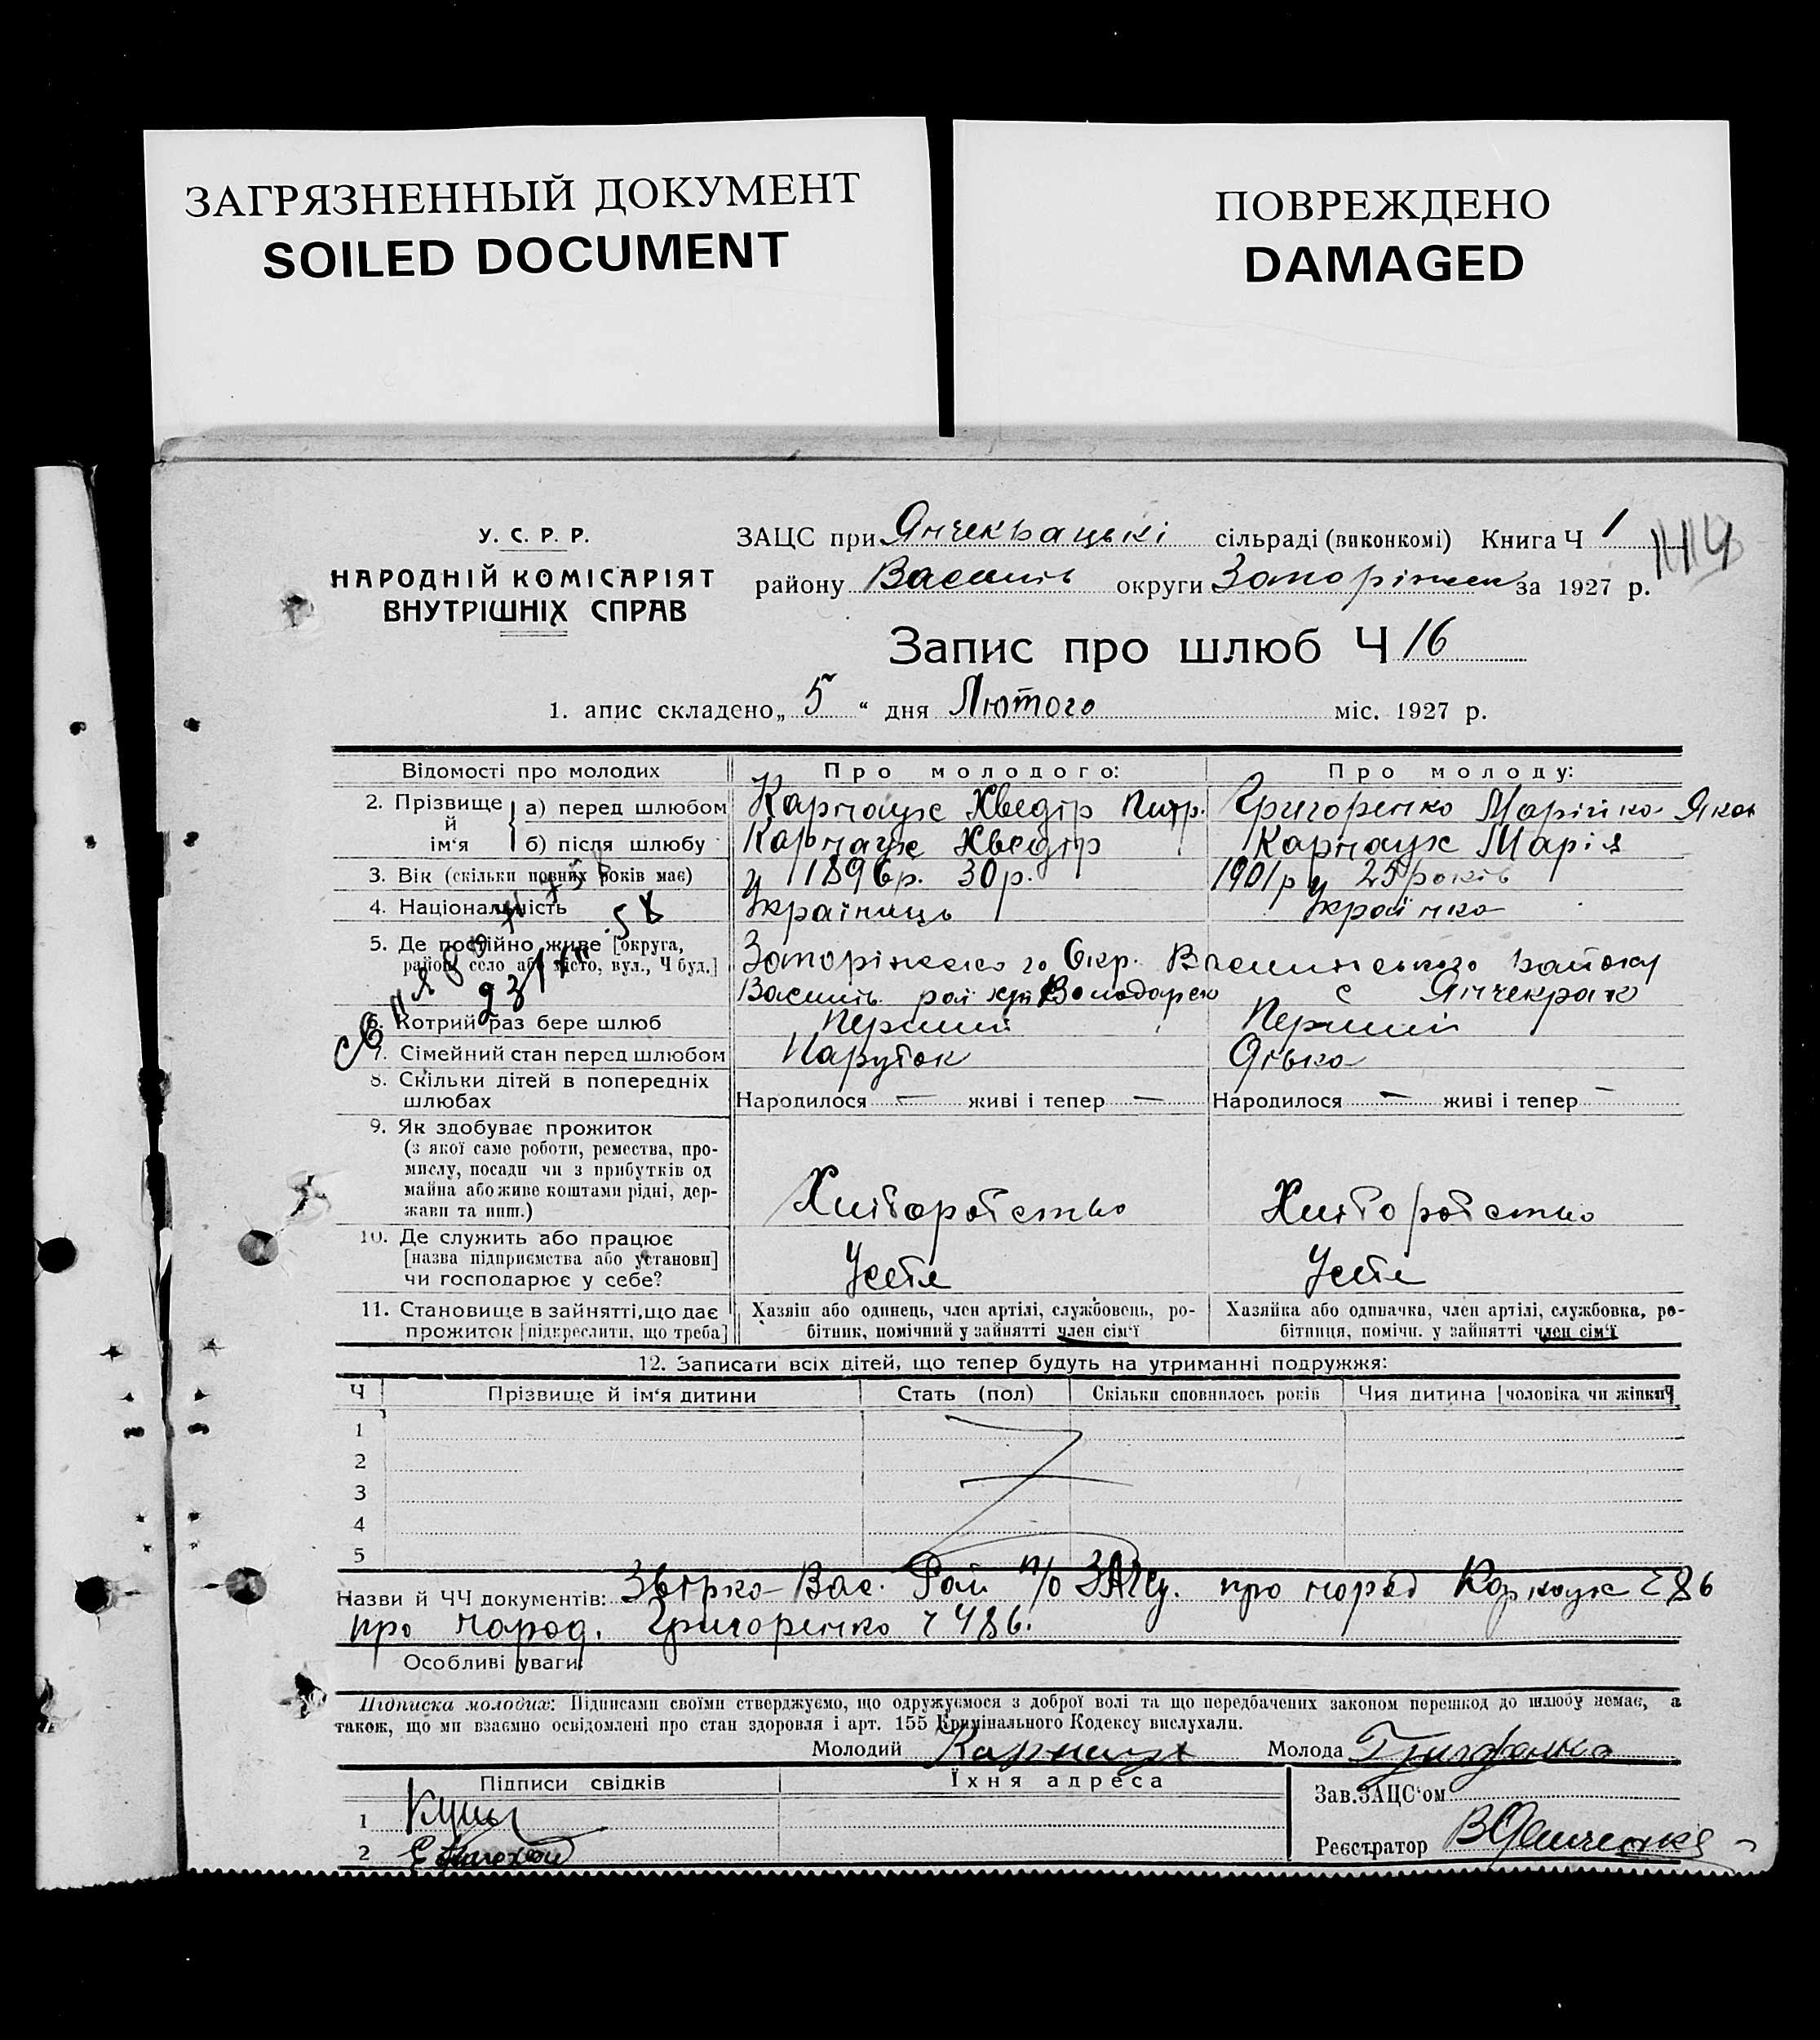 ЗАГРЯЗНЕННЫЙ ДОКУМЕНТ
SOILED DOCUMENT
ПОВРЕЖДЕНО
DAMAGED
У. С. Р. Р.
НАРОДНІЙ КОМІСАРІЯТ
ВНУТРІШНІХ СПРАВ
ЗАЦС при Янчекрацькі сільраді (виконкомі) Книга Ч 1
району Василів округи Запоріжськ за 1927 р.
Запис про шлюб Ч 16
1. апис складено „ 5 “ дня Лютого міс. 1927 р.
Відомості про молодих Про молодого: Про молоду:
2. Прізвище й ім‘я а) перед шлюбом Карнаух Хведір Питр. Григоренко Марійка Яков
б) після шлюбу Карнаух Хведір Карнаух Марія
3. Вік (скільки повних років має) 1896р. 30р. 1901р 25 років
4. Національність Українець Українка
5. Де постійно живе [округа, район, село або місто, вул., Ч буд.] Запоріжського Окр. Василівського району
Василів. рай с Янчекрак
23/III 58
6. Котрий раз бере шлюб Перший Перший
7. Сімейний стан перед шлюбом Паруток Дівка
8. Скільки дітей в попередніх шлюбах Народилося — живі і тепер — Народилося — живі і тепер —
9. Як здобуває прожиток
(з якої саме роботи, ремества, про-
мислу, посади чи з прибутків од
майна або живе коштами рідні, дер-
жави та инш.) Хліборобство Хліборобство
10. Де служить або працює
[назва підприємства або установи]
чи господарює у себе? Усебе Усебе
11. Становище в зайнятті, що дає
прожиток [підкреслити, що треба]
Хазяін або одинець, член артілі, службовець, ро-
бітник, помічний у зайнятті член сім‘ї
Хазяйка або одиначка, член артілі, службовка, ро-
бітниця, помічн. у зайнятті член сім‘ї
12. Записати всіх дітей, що тепер будуть на утриманні подружжя:
Ч Прізвище й ім‘я дитини Стать (пол) Скільки сповнилось років Чия дитина [чоловіка чи жінки]
1
2
3
4
5
Назви й ЧЧ документів: Вас. Рай п/о ЗАГСу. про народ Карнаух
про народ. Григоренко ч 486.
Особливі уваги:
Підписка молодих: Підписами своїми стверджуємо, що одружуємося з доброї волі та що передбачених законом перешкод до шлюбу немає, а
також, що ми взаємно освідомлені про стан здоровля і арт. 155 Кримінального Кодексу вислухали.
Молодий Карнаух Молода Григоренко
Підписи свідків Їхня адреса
1
2
Зав. ЗАЦС‘ом
Реєстратор